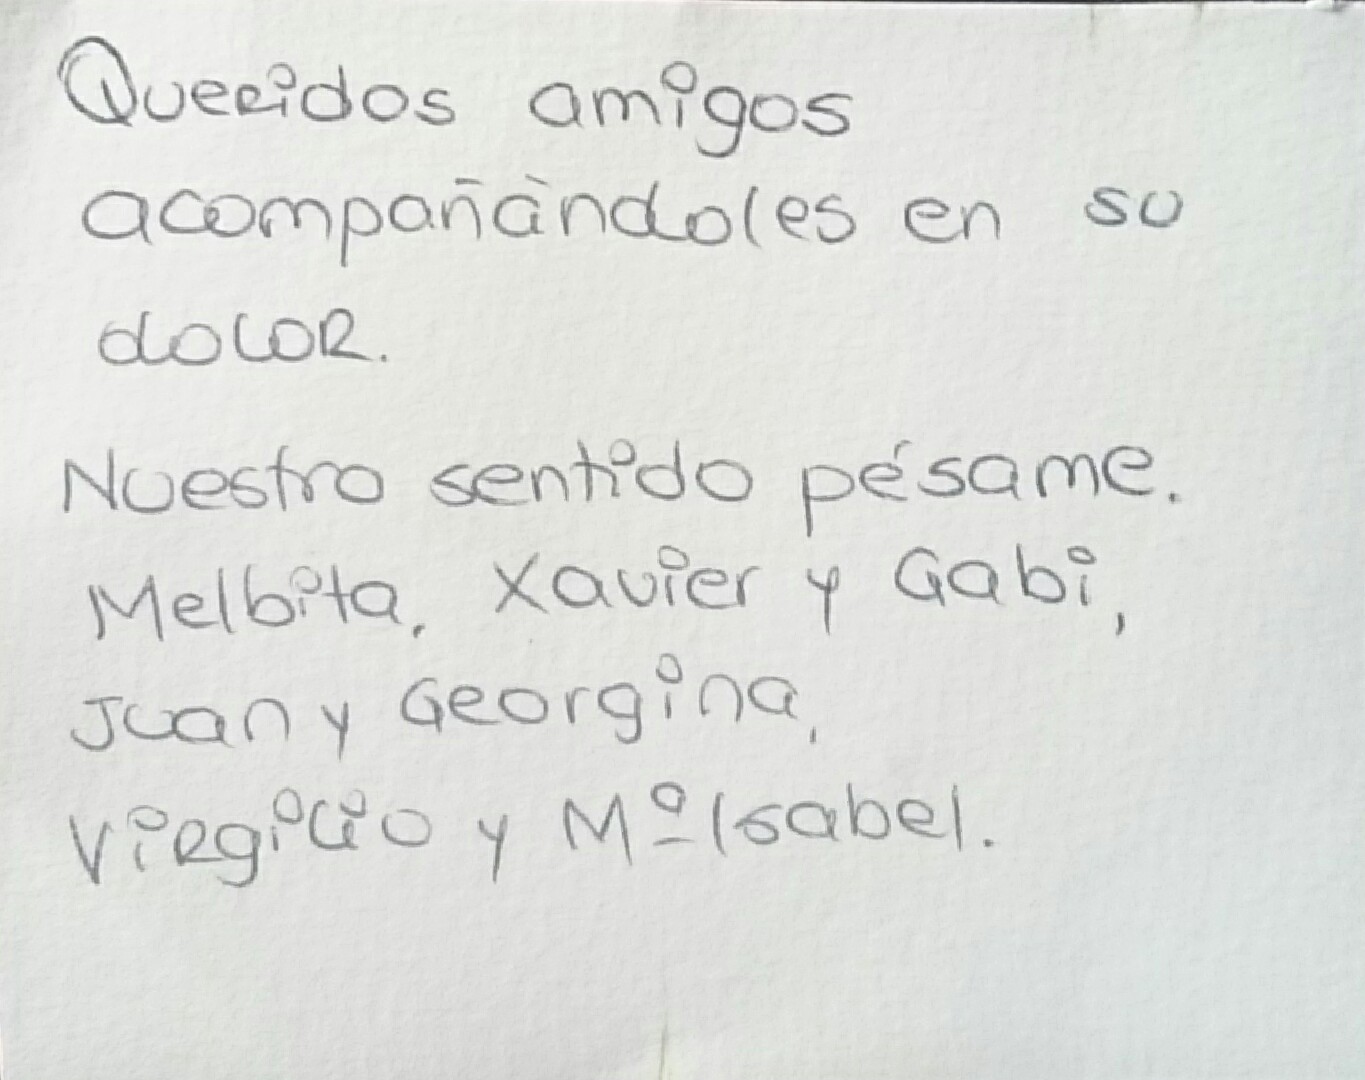 Queridos amigos
acompañàndoles en su
dolor.
Nuestro sentido pésame.
Melbita, Xavier y Gabi,
Juan y Georgina,
Virgilio y Mª Isabel.